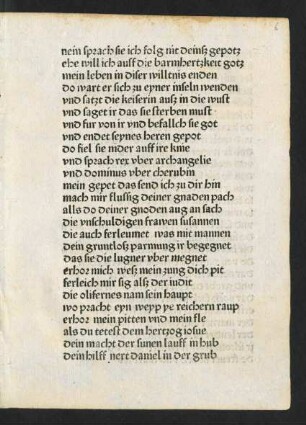 nein sprach sie ich folg nit deinsz gepotz
ehe will ich auff die barmhertzkeit gotz
mein leben in diser wiltnis enden
do wart er sich zu eyner inseln wenden
vnd satzt die keiserin ausz in die wust
vnd saget ir das sie sterben must
vnd fur von ir vnd befalch sie got
vnd endet seynes heren gepot
do fiel sie nider auff ire knie
vnd sprach rex vber archangelie
vnd dominus vber cherubin
mein gepet das send ich zu dir hin
mach mir flussig deiner gnaden pach
als do deiner gnoden aug an sach
die vnschuldigen frawen susannen
die auch ferleumet was mit mannen
dein gruntlosz parmung ir begegnet
das sie die lugner vber megnet
erhor mich wesz mein zung dich pit
ferleich mir sig alsz der iudit
die olifernes nam sein haupt
wo pracht eyn wepp ye reichern raup
erhor mein pitten vnd mein fle
als du tetest dem hertzog iosue
dein macht der sunen lauff in hub
dein hilff nert daniel in der grub